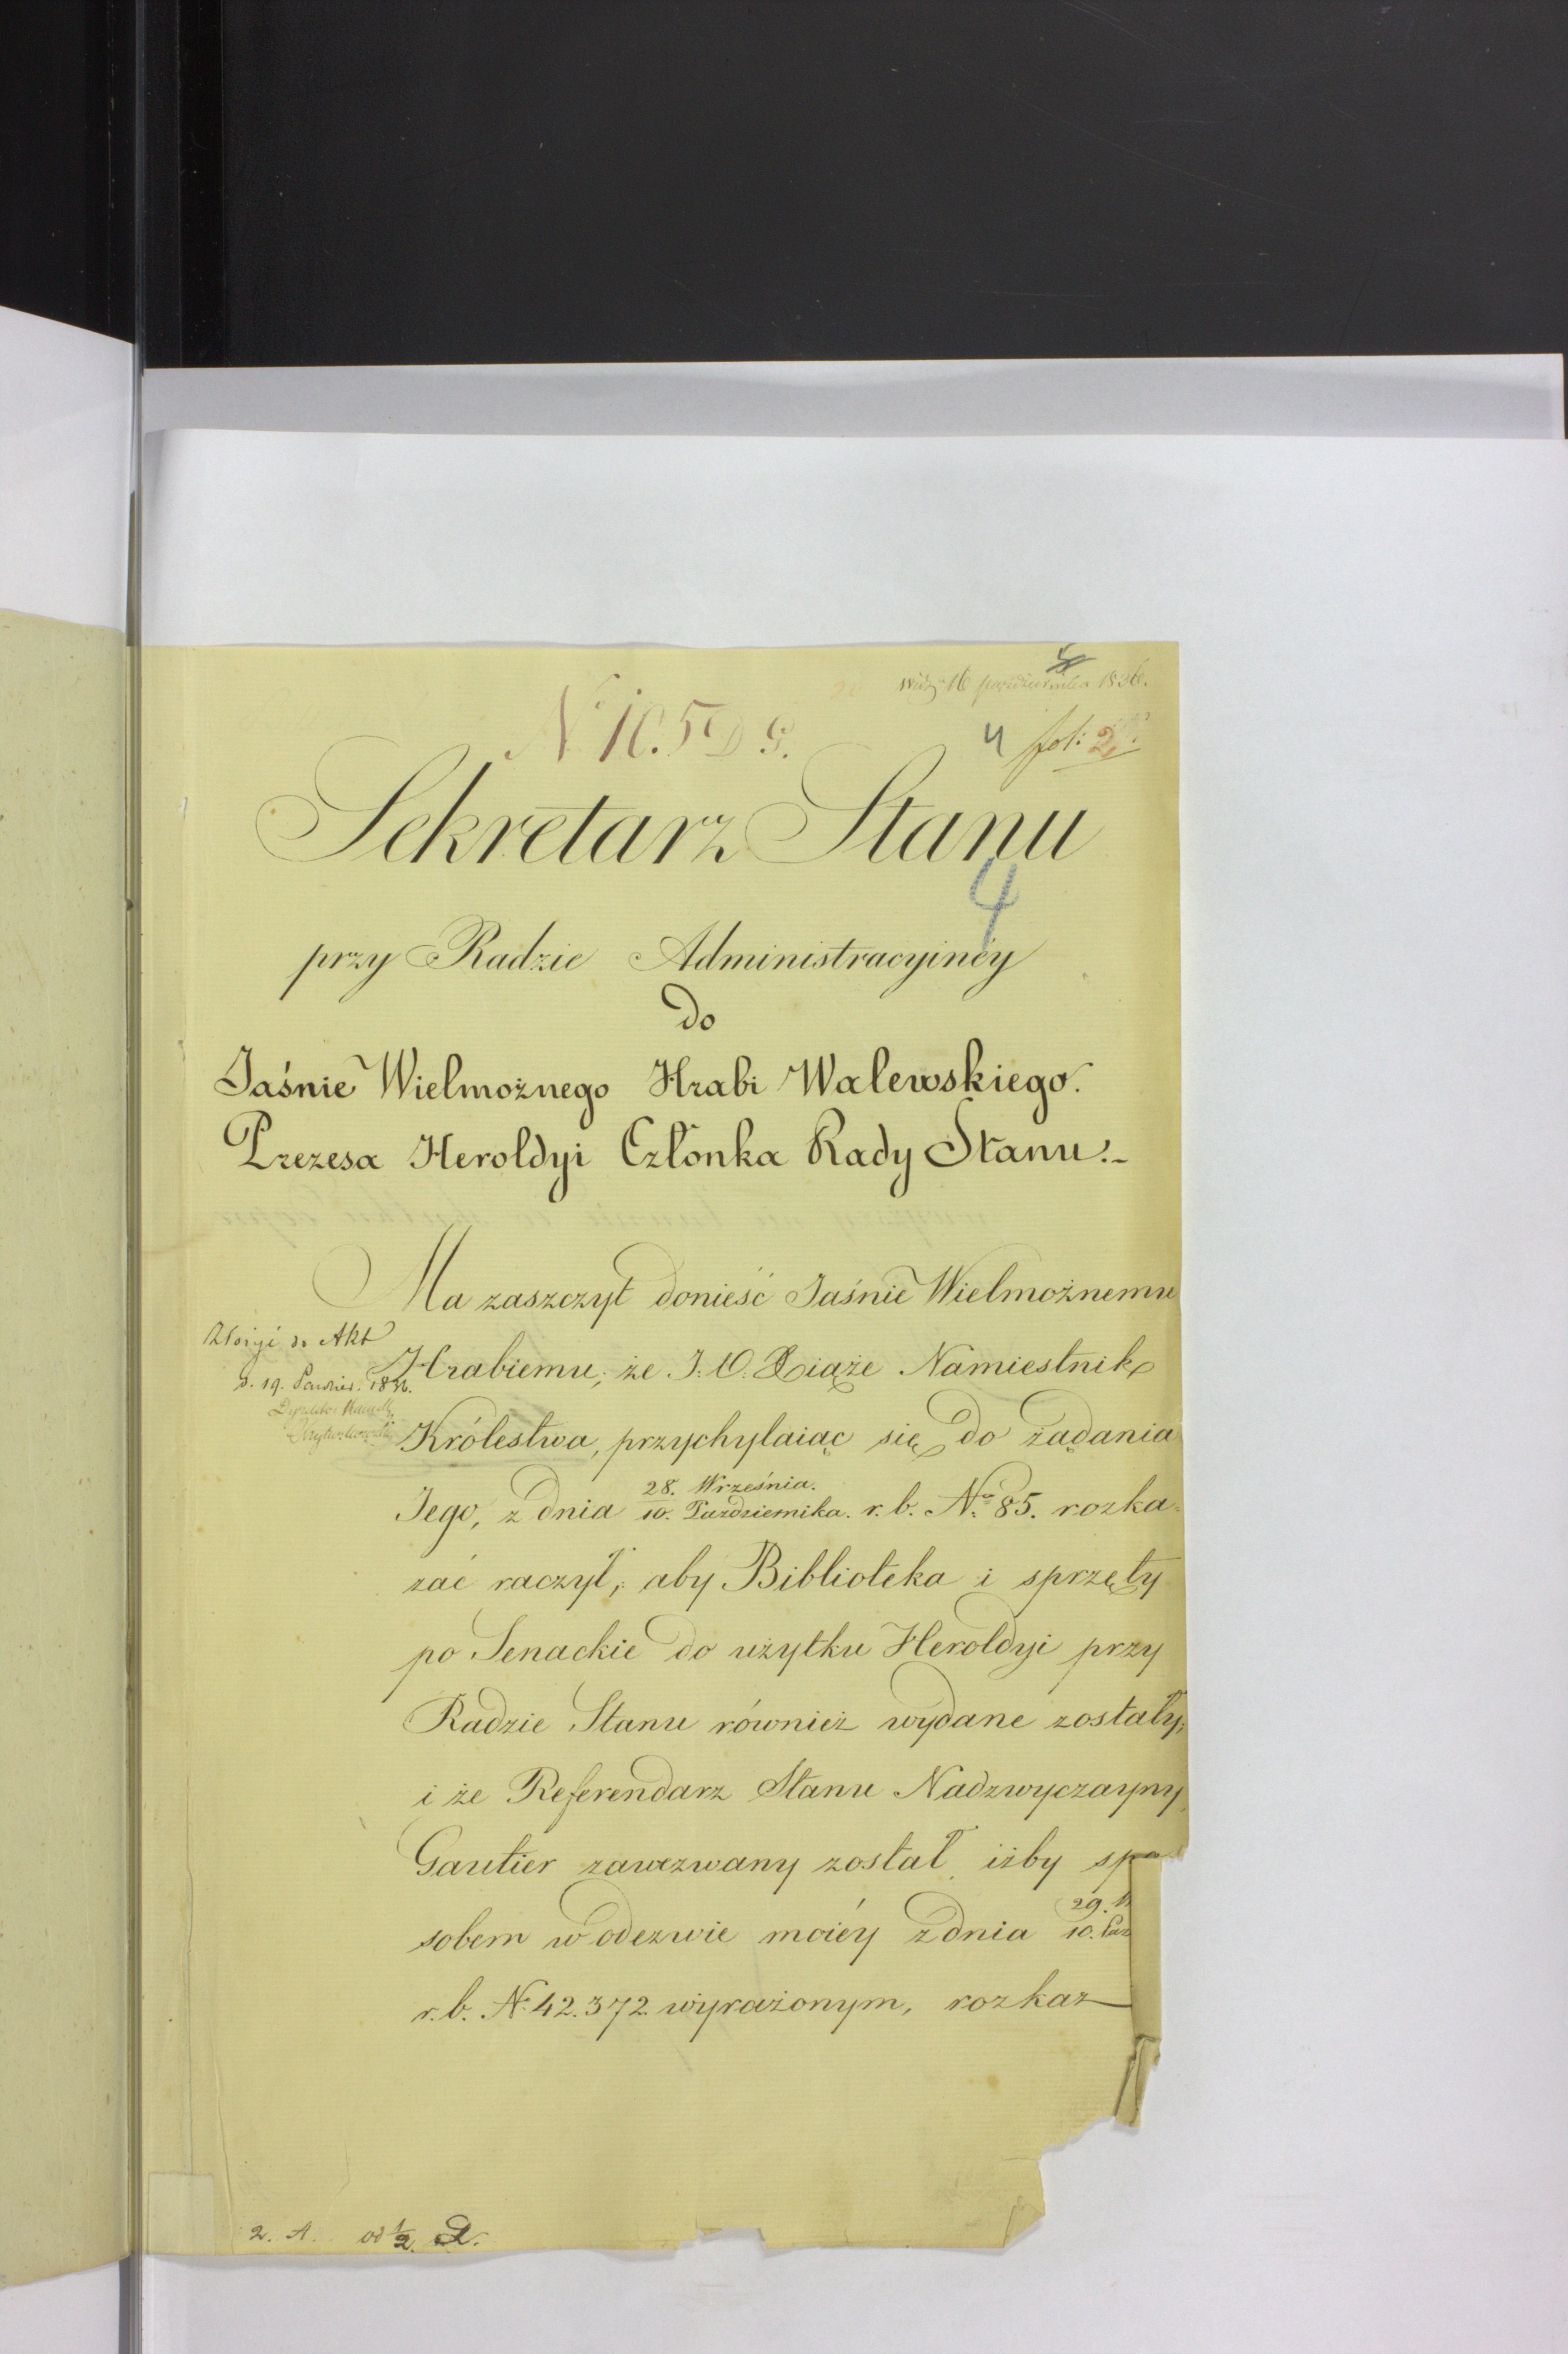 16 października 1836.
4 fol: 2
Sekretarz Stanu
4
przy Radzie Administracyinéy
do
Jaśnie Wielmożnego Hrabi Walewskiego.
Prezesa Heroldyi Członka Rady Stanu.-
Ma zaszczyt donieść Jaśnie Wielmożnemu
Hrabiemu, że J. O. Xiąże Namiestnik
Królestwa, przychylaiąc się do żądania
Jego, z dnia 28. Września. / 10. Października. r. b. No. 85. rozka-
zać raczył, aby Biblioteka i sprzęty
po Senackie do użytku Heroldyi przy
Radzie Stanu również wydane zostały,
i że Referendarz Stanu Nadzwyczayny
Gautier zawezwany został iżby spo
sobem w odezwie moiéy z dnia 29. W / 10. Paz
r. b. N. 42.372 wyrażonym, rozkaz
do Akt
d. 19. 1836.
2. A. od